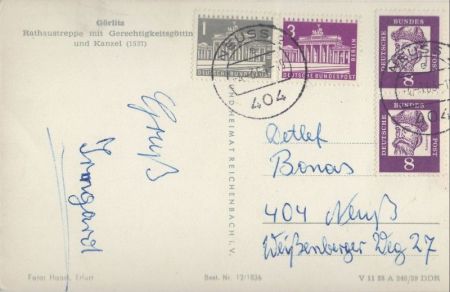 Görlitz
Rathaustreppe mit Gerechtigkeitsgöttin
und Kanzel (1537)
Gruß
Irmgard
1
DEUTSCHE BUNDESPOST
BERLIN
3
DEUTSCHE BUNDESPOST
BERLIN
NEUSS
404
BUNDES
POST
DEUTSCHE
8
NEUSS
404
BUNDES
POST
DEUTSCHE
8
UND HEIMAT REICHENBACH I. V.
Detlef
Bonas
404 Neuß
Weißenberger Weg 27
Foto: Handt, Erfurt
Best. Nr. 12/1836
V 11 28 A 240/59 DDR